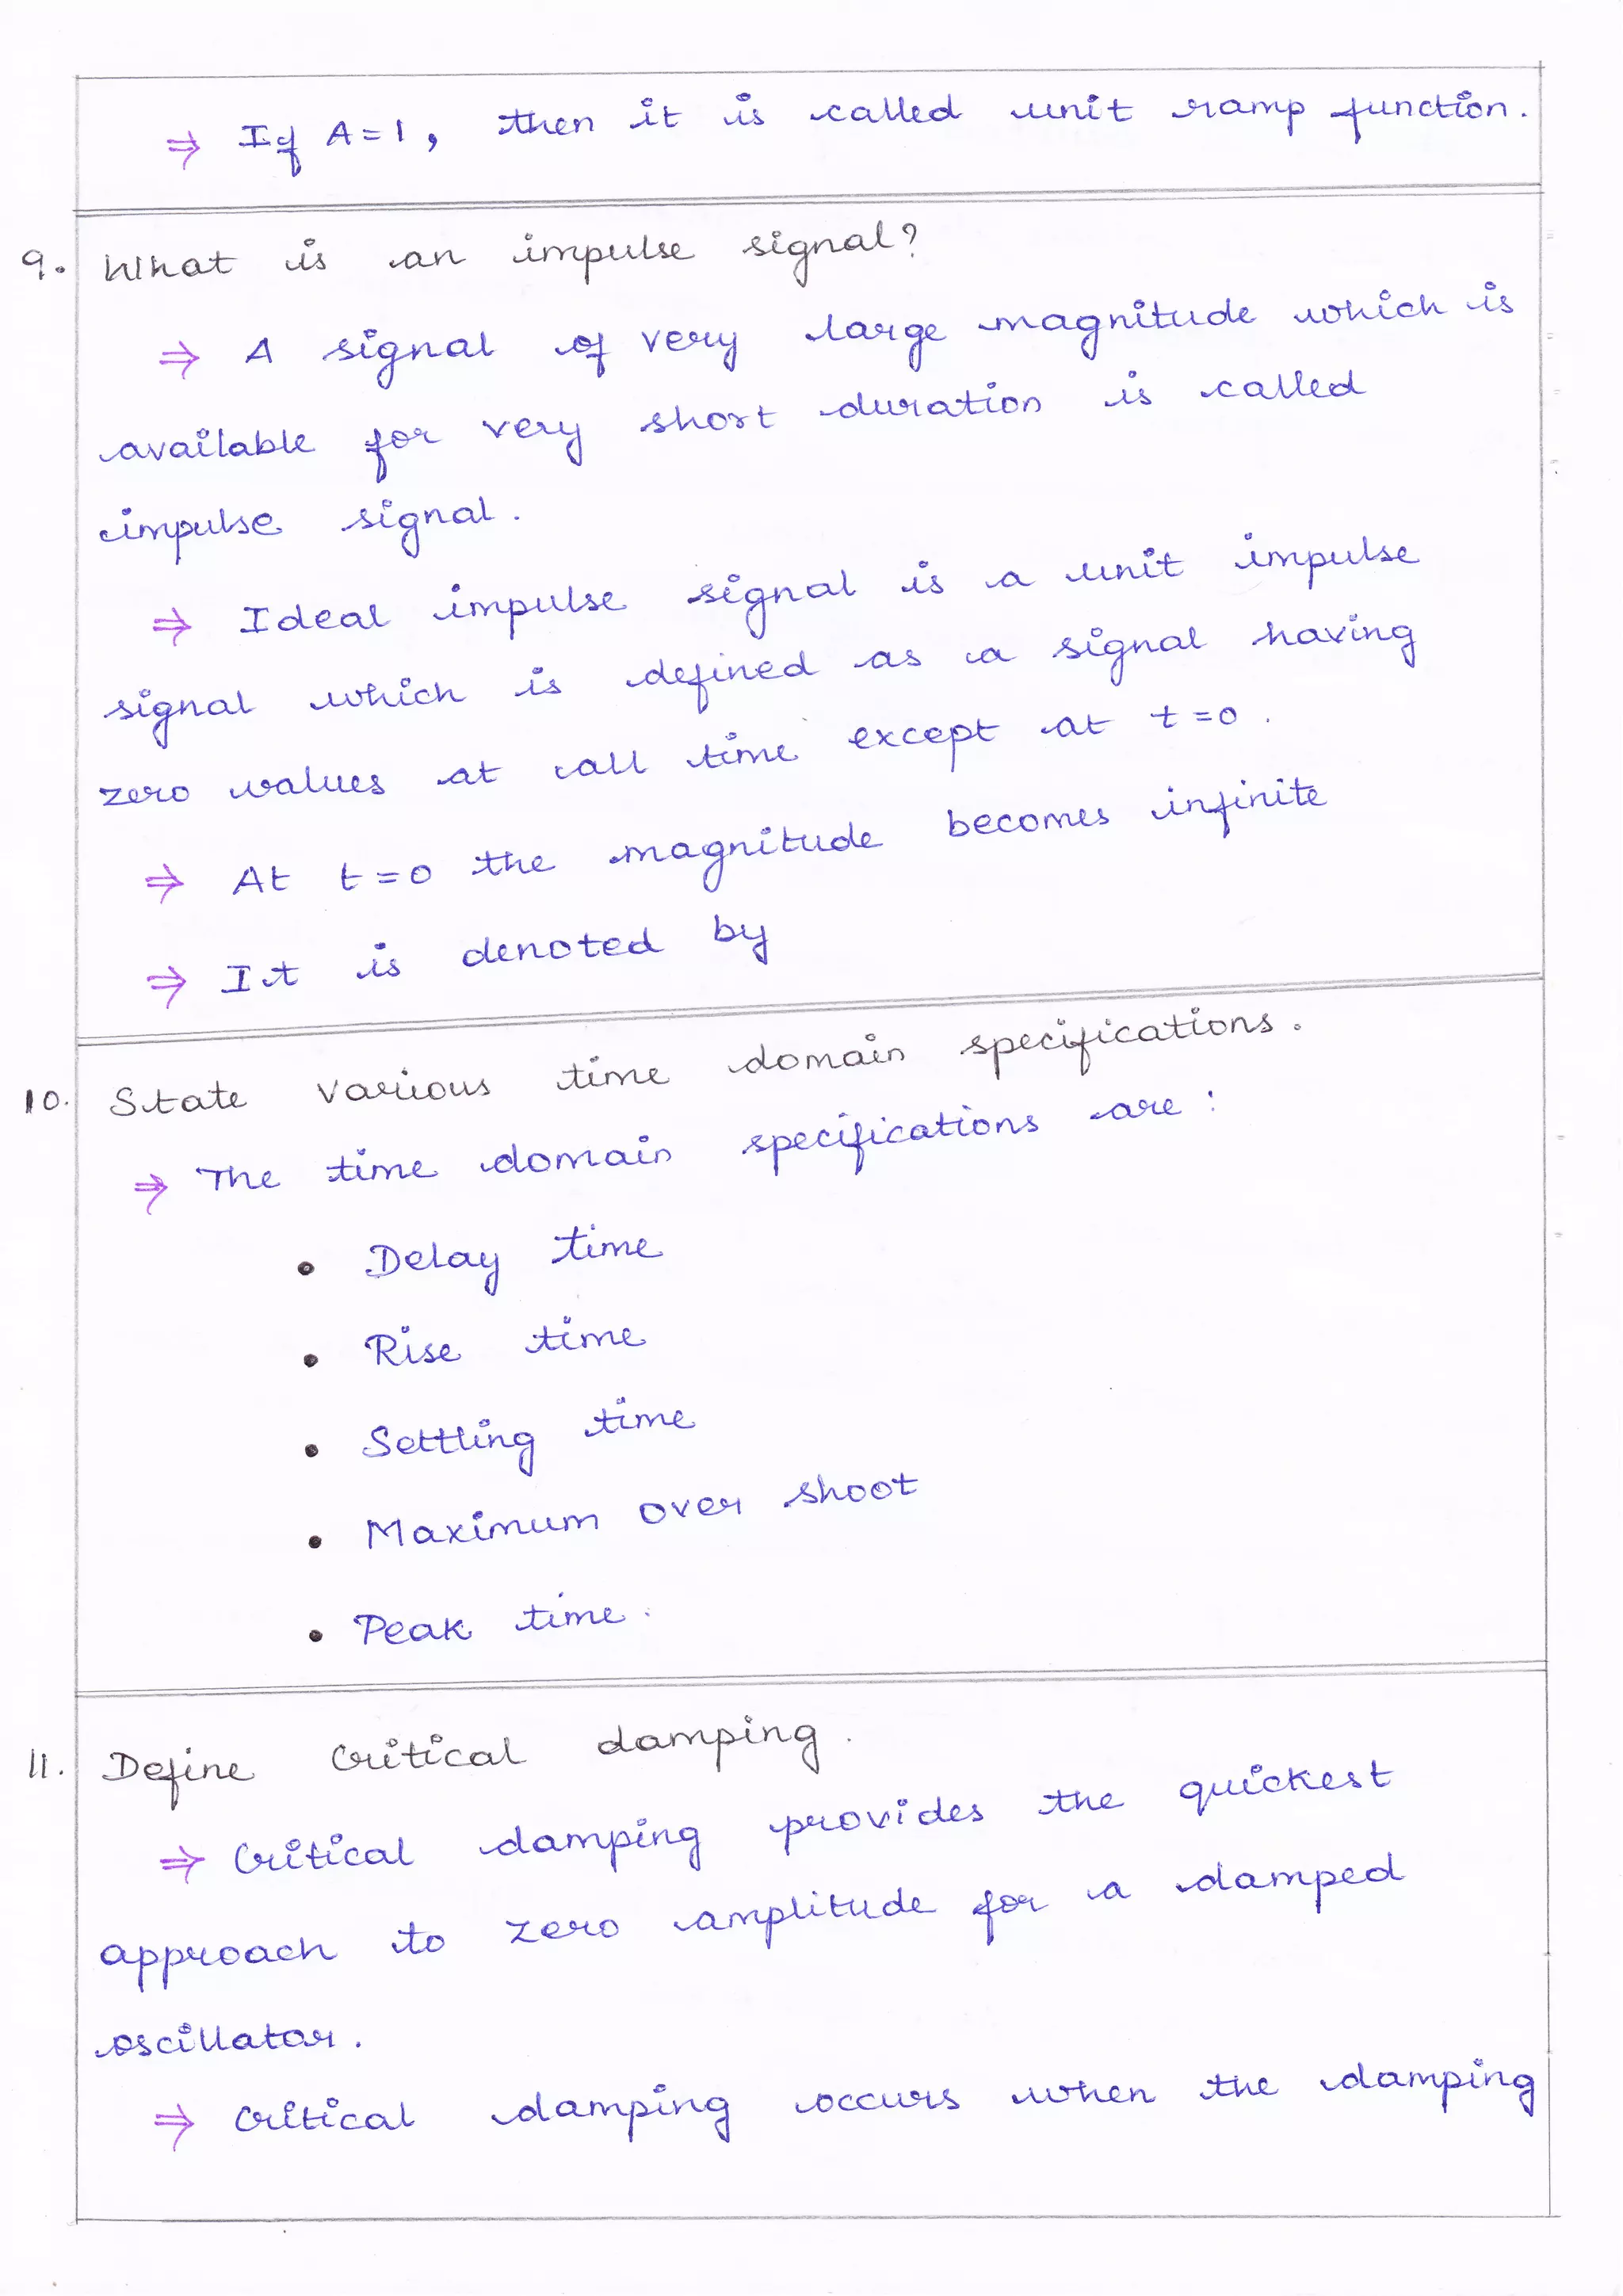 ⇒ If A=1, then it is called unit ramp function.
9. What is an impulse signal?
⇒ A signal of very large magnitude which is
available for very short duration is called
impulse signal.
⇒ Ideal impulse signal is a unit impulse
signal which is defined as a signal having
zero values at all time except at t=0.
⇒ At t=0 the magnitude becomes infinite
⇒ It is denoted by
10. State various time domain specifications.
⇒ The time domain specifications are:
• Delay time
• Rise time
• Settling time
• Maximum over shoot
• Peak time.
11. Define Critical damping.
⇒ Critical damping provides the quickest
approach to zero amplitude for a damped
oscillator.
⇒ Critical damping occurs when the damping